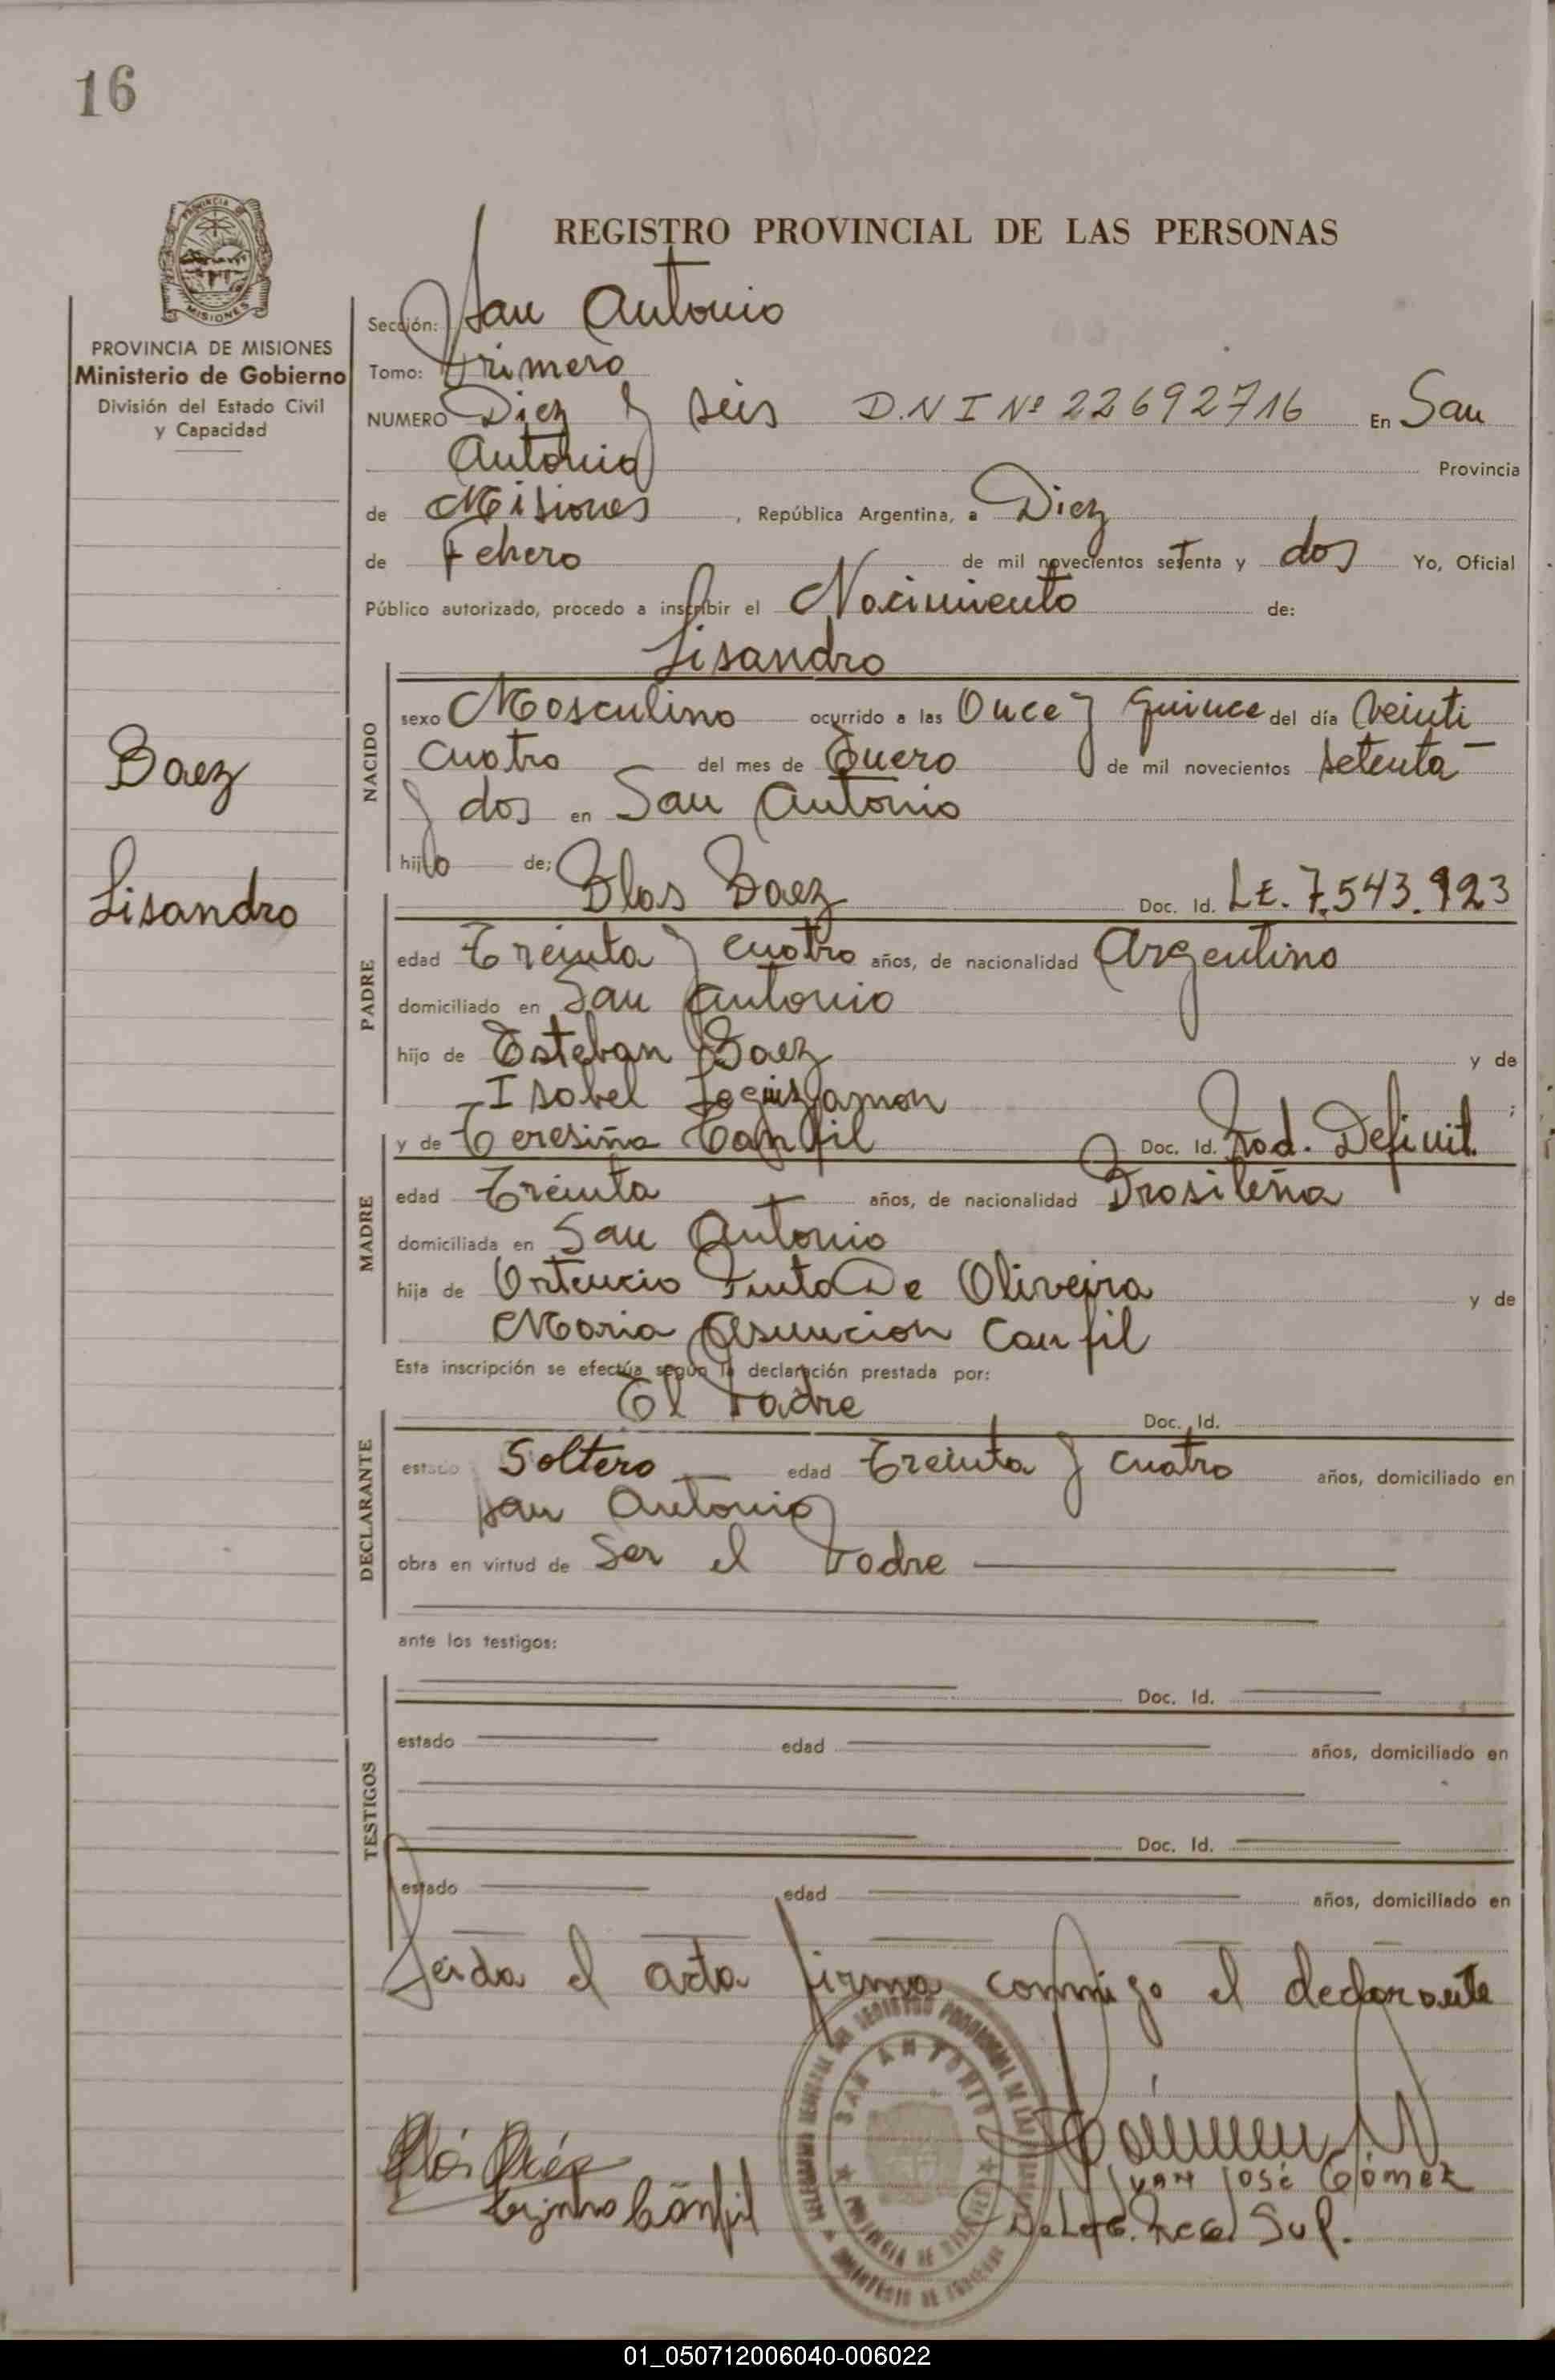 16
PROVINCIA DE MISIONES
Ministerio de Gobierno
División del Estado Civil
y Capacidad
Baez
Lisandro
REGISTRO PROVINCIAL DE LAS PERSONAS
Sección: San Antonio
Tomo: Primero
NUMERO Diez y seis D.N I Nº 22692716 En San
Antonio Provincia
de Misiones, República Argentina, a Diez
de Febero de mil novecientos setenta y dos Yo, Oficial
Público autorizado, procedo a inscribir el Nacimiento de:
Lisandro
NACIDO
sexo Masculino ocurrido a las Once y quince del día veinti
cuatro del mes de Enero de mil novecientos setenta
y dos en San Antonio
hijo de: Blas Baez Doc. Id. LE. 7.543.923
PADRE
edad Treinta y cuatro años, de nacionalidad Argentino
domiciliado en San Antonio
hijo de Esteban Baez y de
Isabel Leguizamon ;
y de Teresiña Canfil Doc. Id. Rad. Definit.
MADRE
edad Treinta años, de nacionalidad Brasileña
domiciliada en San Antonio
hija de Ortencio Pinto De Oliveira y de
Maria Asuncion Canfil
Esta inscripción se efectúa según la declaración prestada por:
El Padre Doc. Id.
DECLARANTE
estado Soltero edad Treinta y cuatro años, domiciliado en
San Antonio
obra en virtud de Ser el Padre
ante los testigos:
Doc. Id.
TESTIGOS
estado edad años, domiciliado en
Doc. Id.
estado edad años, domiciliado en
Leida el acta firma conmigo el declarante
SAN ANTONIO
PROVINCIA DE MISIONES
MINISTERIO DE GOBIERNO
Juan José Gómez
Deleg. Reg. Sup.
01_050712006040-006022